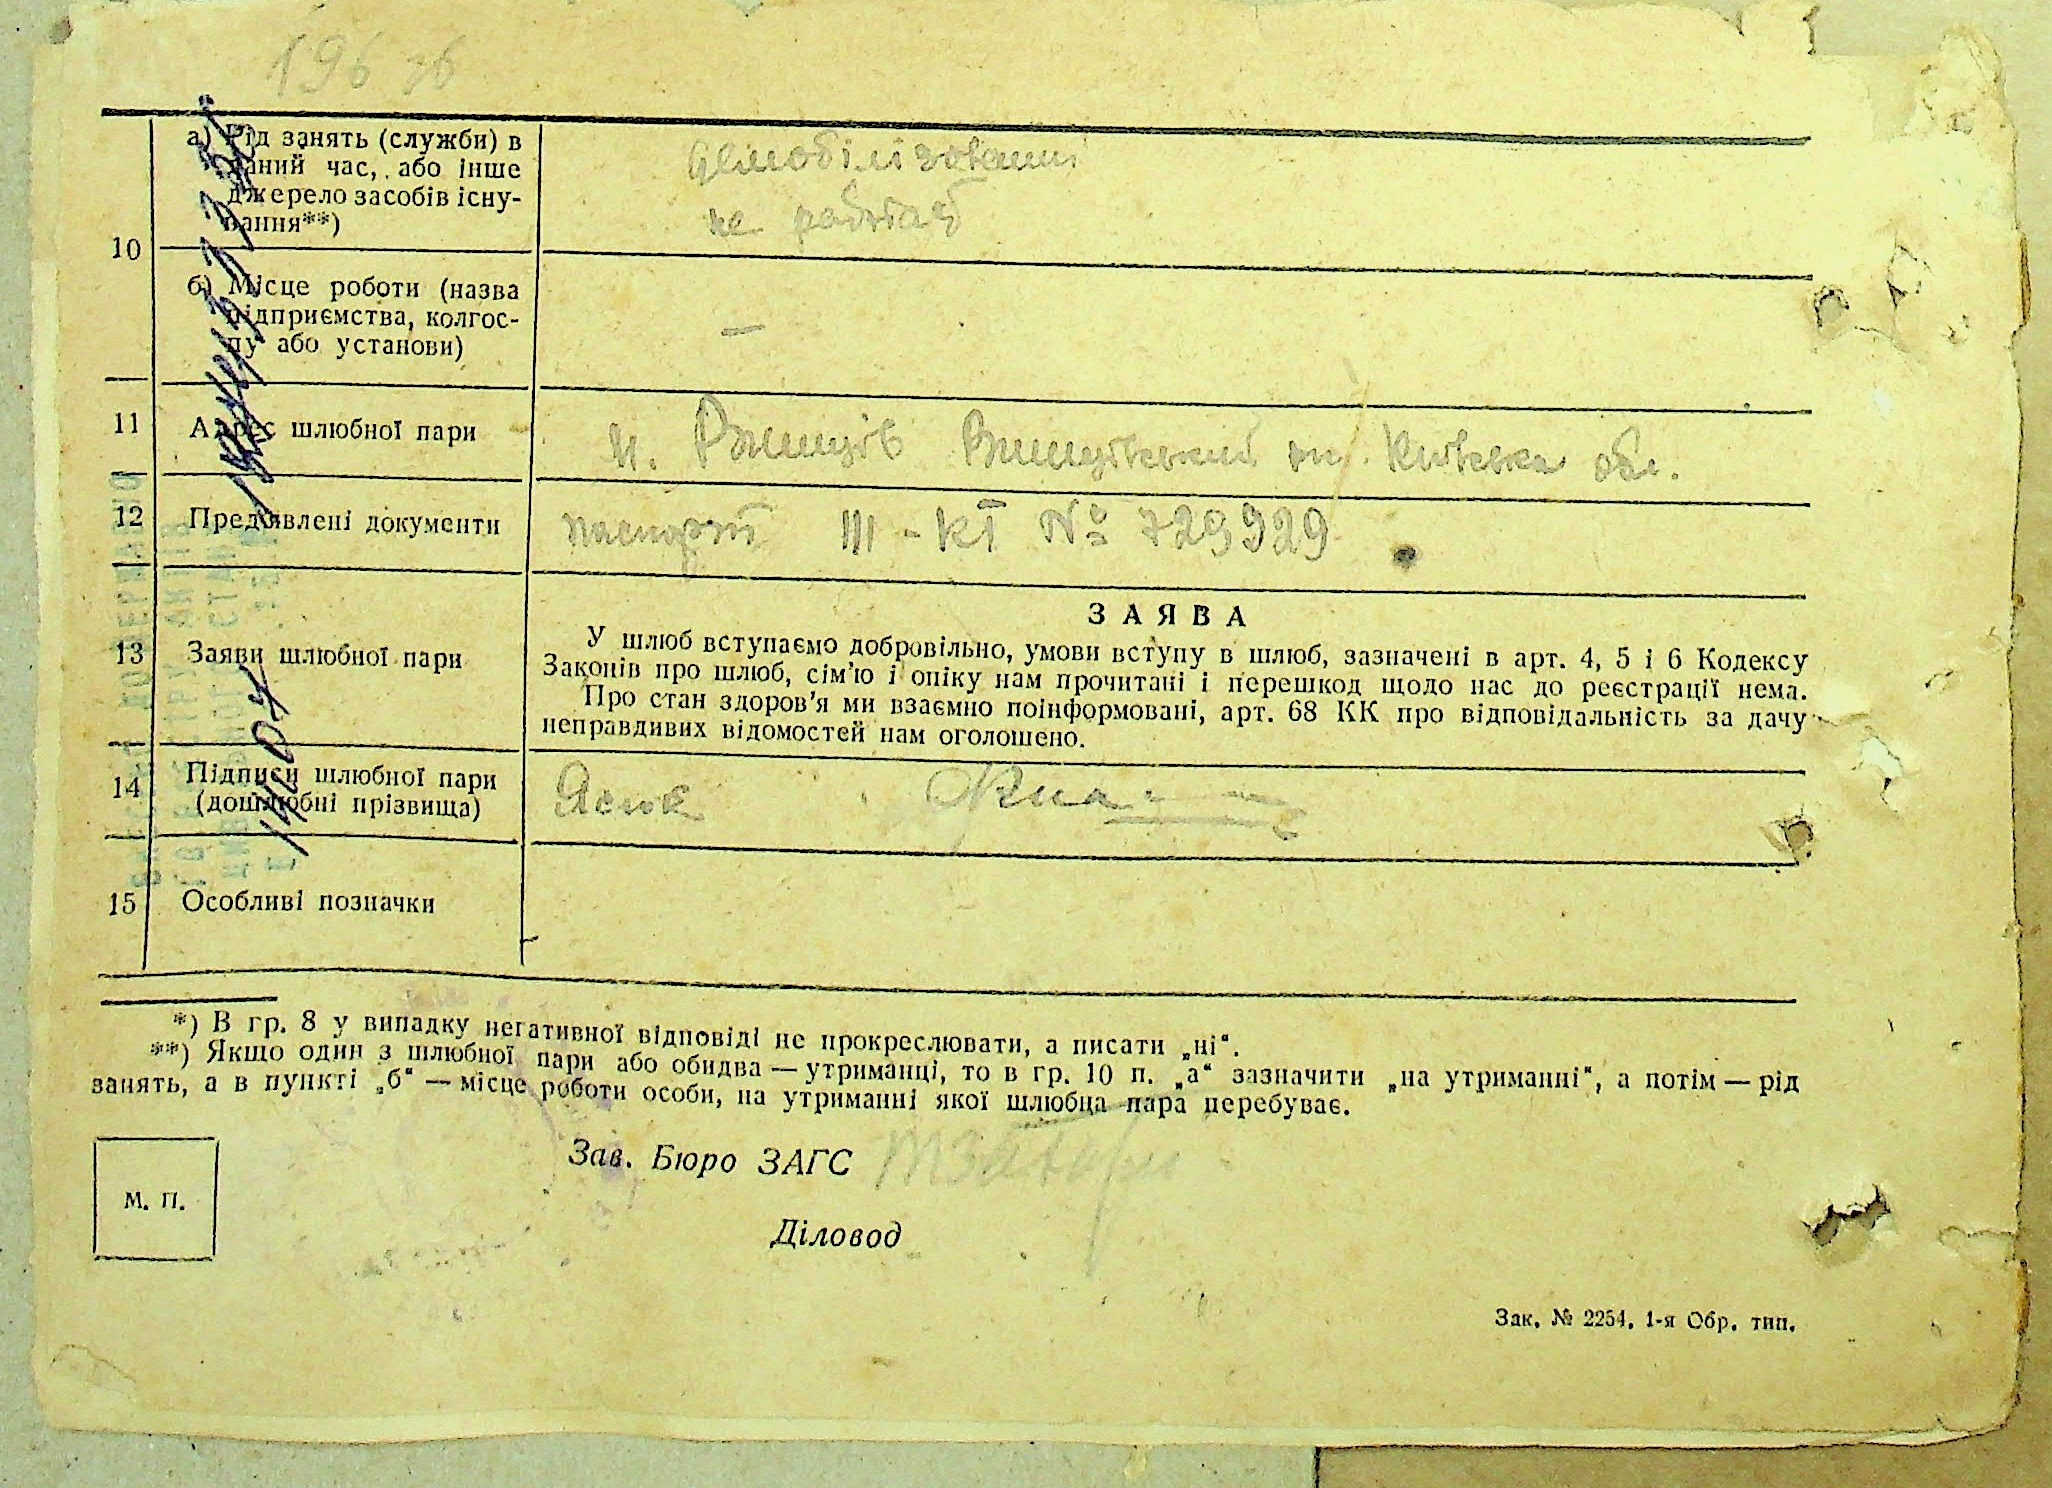 196 зб
10
а) Рід занять (служби) в
даний час, або інше
джерело засобів існу-
вання**)
демобілізований
не работає
б) Місце роботи (назва
підприємства, колгос-
пу або установи)
—
11
Адрес шлюбної пари
м. Ржищів Ржищівський р-н. Київська обл.
12
Пред'явлені документи
паспорт III - КТ № 729929
13
Заяви шлюбної пари
ЗАЯВА
У шлюб вступаємо добровільно, умови вступу в шлюб, зазначені в арт. 4, 5 і 6 Кодексу
Законів про шлюб, сім'ю і опіку нам прочитані і перешкод щодо нас до реєстрації нема.
Про стан здоров'я ми взаємно поінформовані, арт. 68 КК про відповідальність за дачу
неправдивих відомостей нам оголошено.
14
Підписи шлюбної пари
(дошлюбні прізвища)
15
Особливі позначки
*) В гр. 8 у випадку негативної відповіді не прокреслювати, а писати „ні“.
**) Якщо один з шлюбної пари або обидва — утриманці, то в гр. 10 п. „а“ зазначити „на утриманні“, а потім — рід
занять, а в пункті „б“ — місце роботи особи, на утриманні якої шлюбна пара перебуває.
Зав. Бюро ЗАГС
М. П.
Діловод
Зак. № 2254. 1-я Обр. тип.